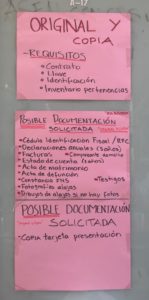 ORIGINAL Y
COPIA
- REQUISITOS
* Contrato
* Llave
* Identificación
* Inventario pertenencias
POSIBLE DOCUMENTACIÓN
SOLICITADA
* Cédula Identificación Fiscal / RFC
* Declaraciones anuales (saldos)
* Facturas * Comprobante domicilio
* Estado de cuenta (saldos)
* Acta de matrimonio
* Acta de defunción
* Constancia FMS * Testigos
* Fotografías alajas
* Dibujos de alajas si no hay fotos
POSIBLE DOCUMENTACIÓN
SOLICITADA
- Copia tarjeta presentación